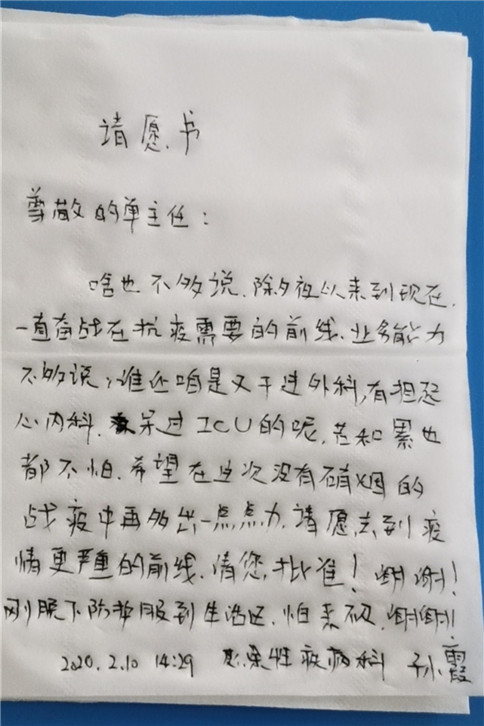 请愿书
尊敬的单主任：
啥也不多说，除夕夜以来到现在，
一直奋战在抗疫需要的前线，业务能力
不多说，谁还咱是又干过外科，有担
心内科，呆过ICU的呢，苦和累也
都不怕，希望在这次没有硝烟的
战疫中再多出一点点力，请愿去到疫
情更严重的前线，请您批准！谢谢！
刚脱下防护服到生活区，怕来不及，谢谢！
2020.2.10 14:29 感染性疾病科 孙霞